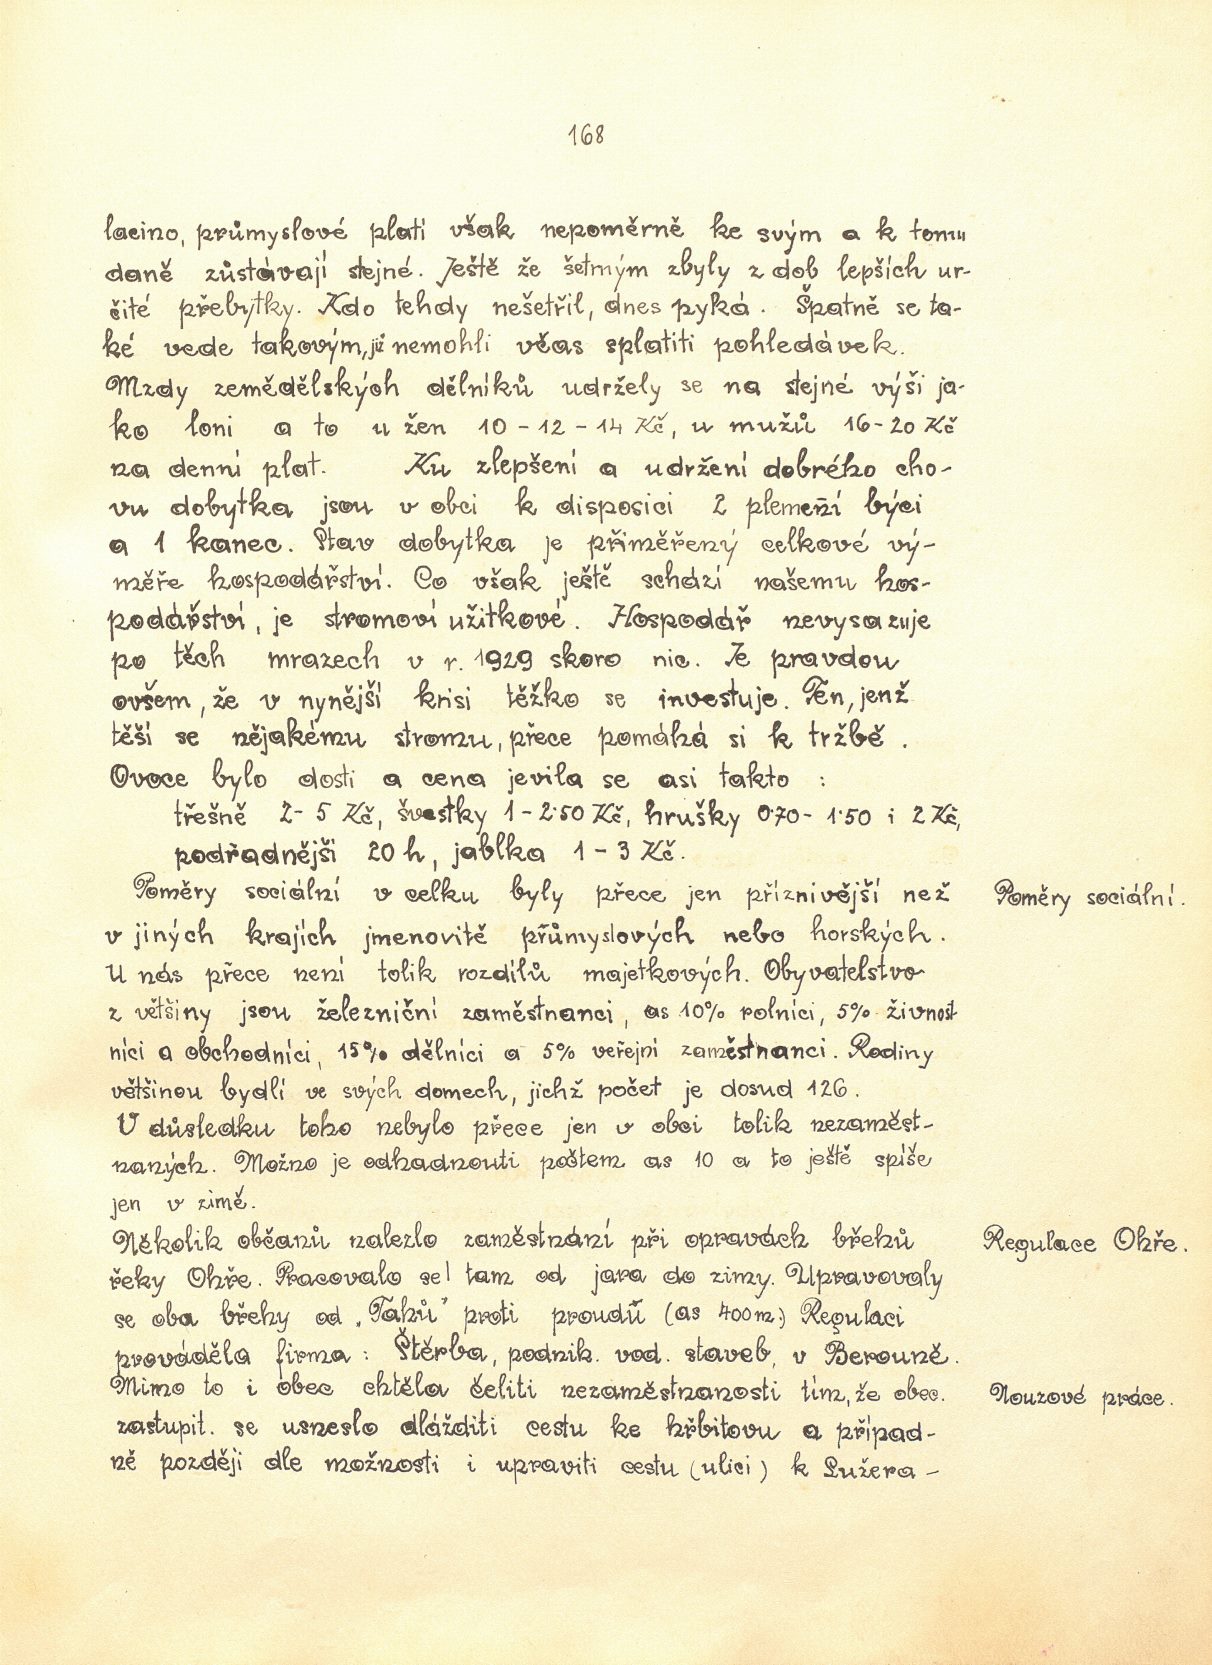 168
lacino, průmyslové platí však nepoměrně ke svým a k tomu
daně zůstávají stejné. Ještě že šetrným zbyly z dob lepších ur-
čité přebytky. Kdo tehdy nešetřil, dnes pyká. Špatně se ta-
ké vede takovým, již nemohli včas splatiti pohledávek.
Mzdy zemědělských dělníků udržely se na stejné výši ja-
ko loni a to u žen 10 - 12 - 14 Kč, u mužů 16-20 Kč
na denní plat. Ku zlepšení a udržení dobrého cho-
vu dobytka jsou v obci k disposici 2 plemenní býci
a 1 kanec. Stav dobytka je přiměřený celkové vý-
měře hospodářství. Co však ještě schází našemu hos-
podářství, je stromoví užitkové. Hospodář nevysazuje
po těch mrazech v r. 1929 skoro nic. Je pravdou
ovšem, že v nynější krisi těžko se investuje. Ten, jenž
těší se nějakému stromu, přece pomáhá si k tržbě.
Ovoce bylo dosti a cena jevila se asi takto :
třešně 2- 5 Kč, švestky 1 - 2·50 Kč, hrušky 0·70- 1·50 i 2 Kč,
podřadnější 20 h, jablka 1 - 3 Kč.
Poměry sociální v celku byly přece jen příznivější než
Poměry sociální.
v jiných krajích jmenovitě průmyslových nebo horských.
U nás přece není tolik rozdílů majetkových. Obyvatelstvo
z většiny jsou železniční zaměstnanci, as 10% rolníci, 5% živnost
níci a obchodníci, 15% dělníci a 5% veřejní zaměstnanci. Rodiny
většinou bydlí ve svých domech, jichž počet je dosud 126.
V důsledku toho nebylo přece jen v obci tolik nezaměst-
naných. Možno je odhadnouti počtem as 10 a to ještě spíše
jen v zimě.
Několik občanů nalezlo zaměstnání při opravách břehů
Regulace Ohře.
řeky Ohře. Pracovalo se tam od jara do zimy. Upravovaly
se oba břehy od „Tahů" proti proudů (as 400 m.) Regulaci
prováděla firma : Štěrba, podnik. vod. staveb, v Berouně.
Mimo to i obec chtěla čeliti nezaměstnanosti tím, že obec.
Nouzové práce.
zastupit. se usneslo dlážditi cestu ke hřbitovu a případ-
ně později dle možnosti i upraviti cestu (ulici) k Lužera -